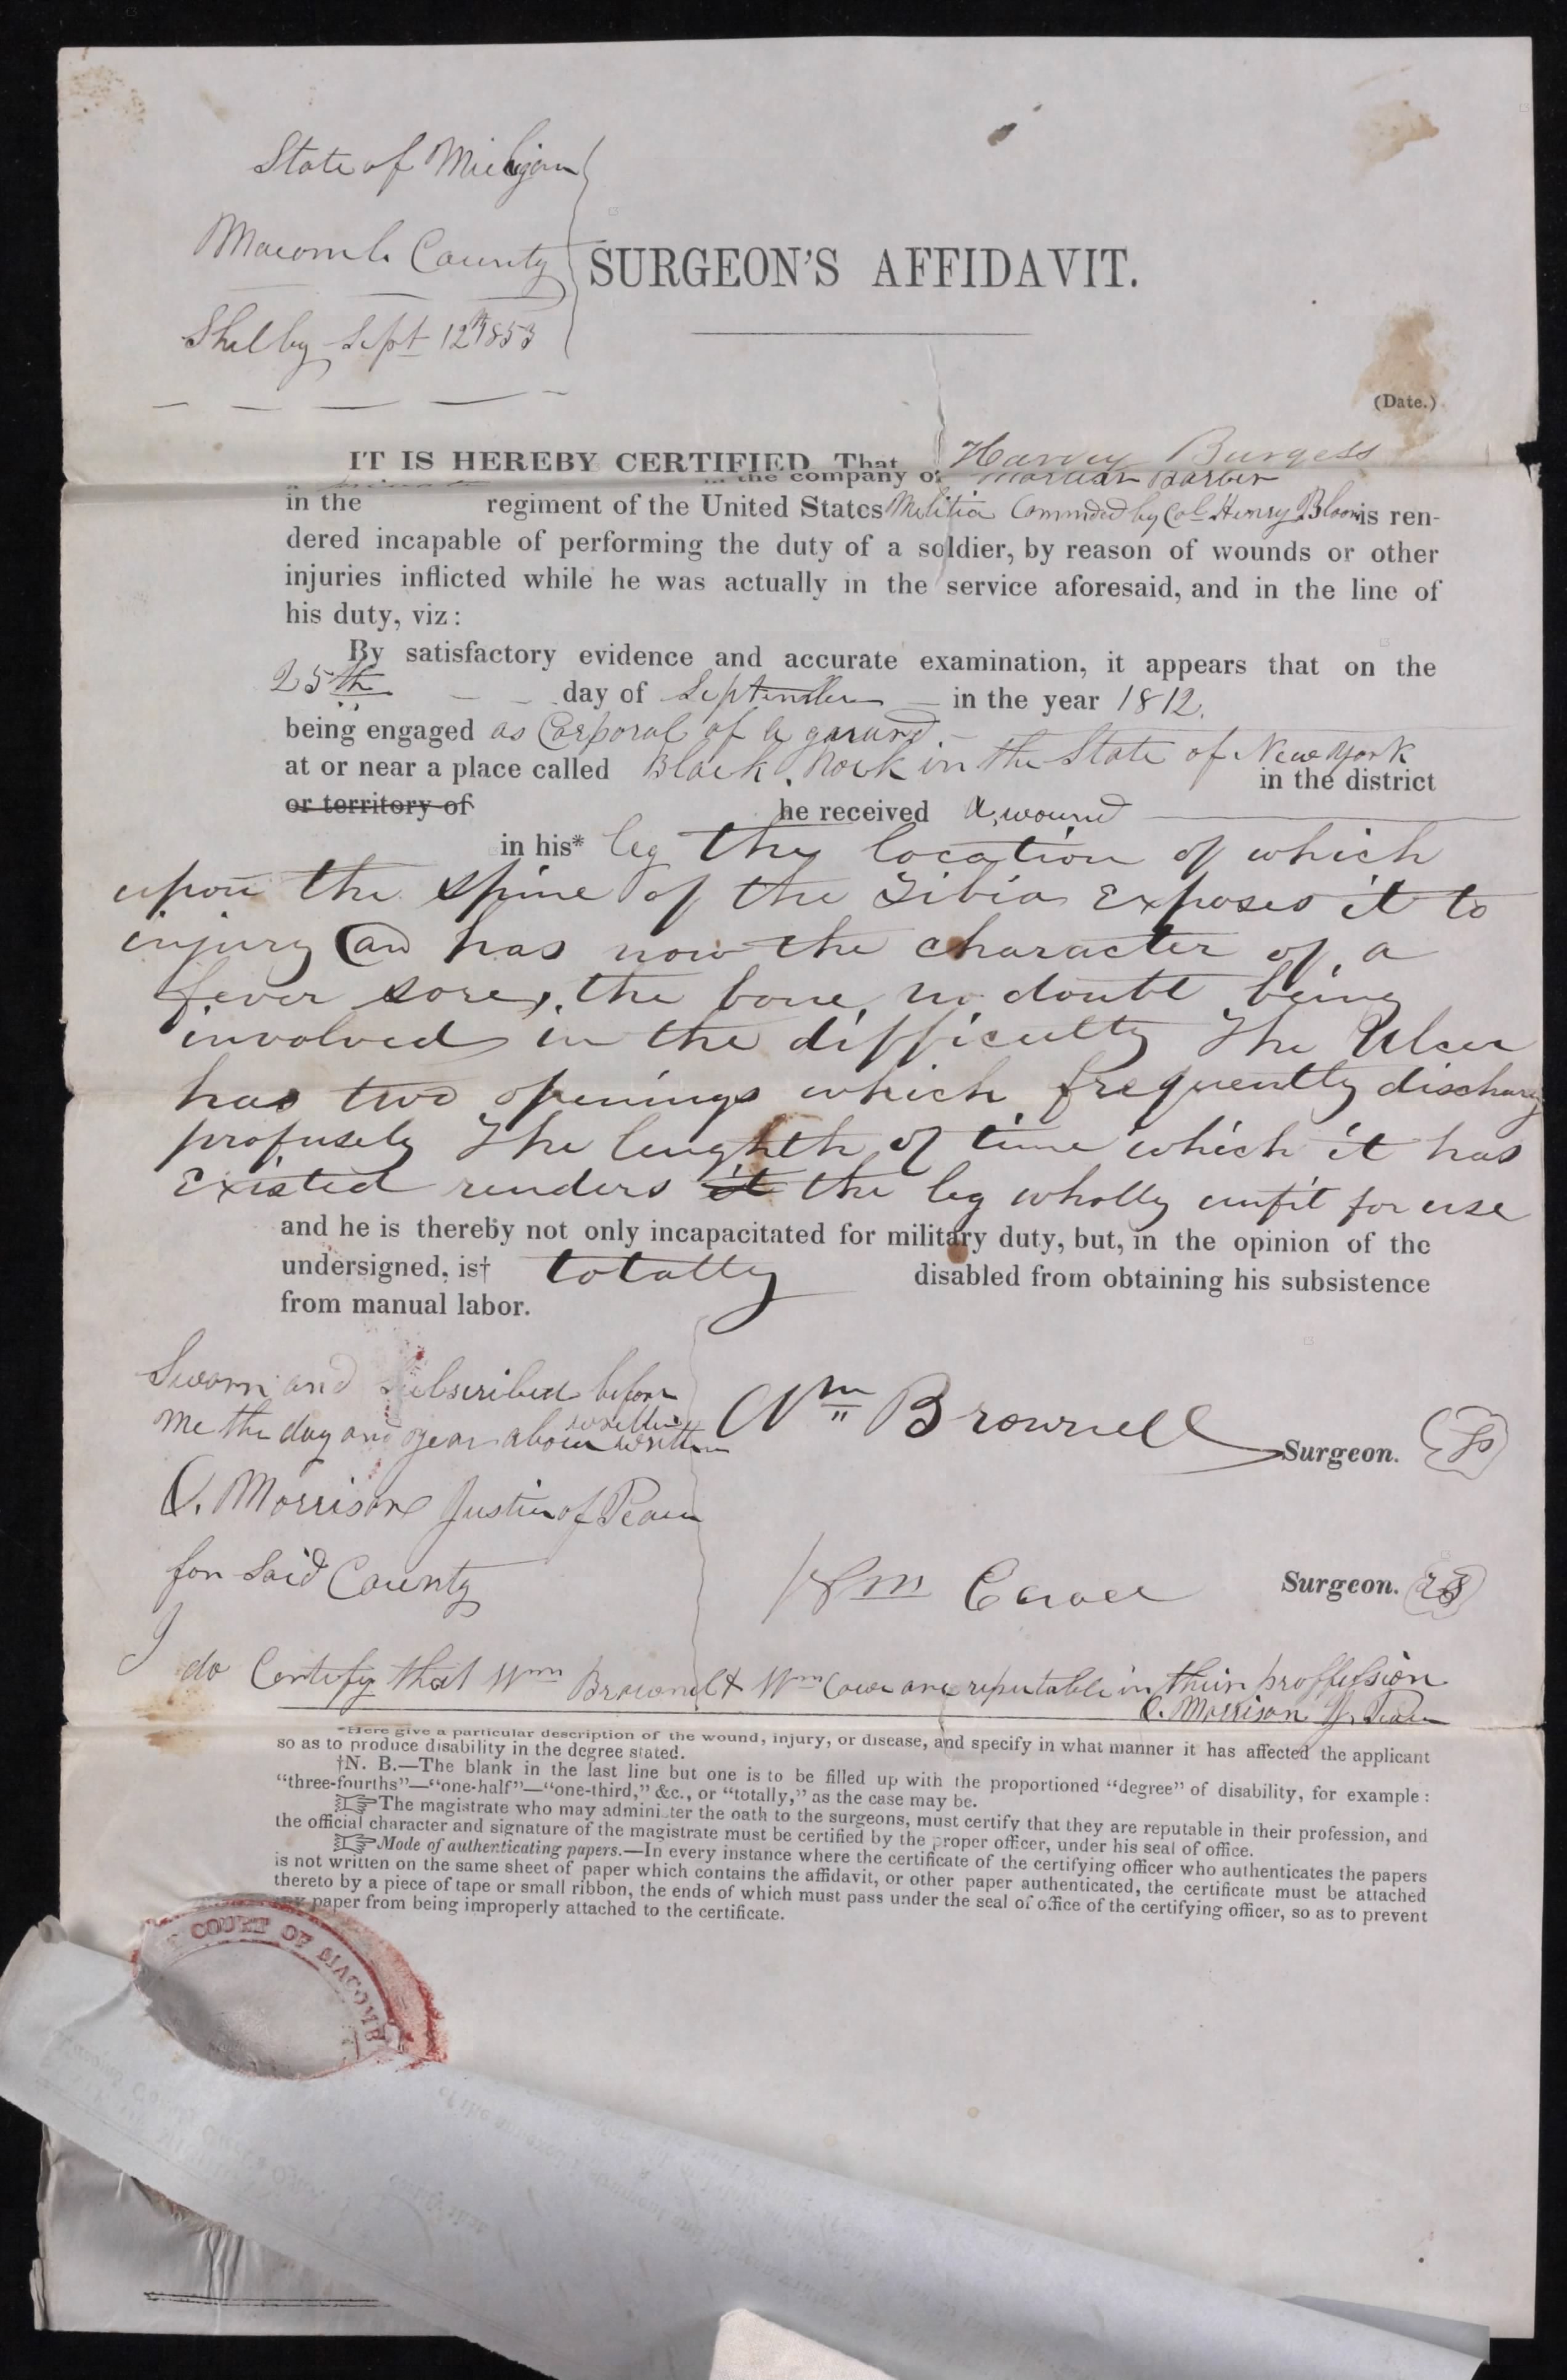 State of Michigan
Macomb County
Shelby Sept 12th 1853
SURGEON'S AFFIDAVIT.
(Date.)
IT IS HEREBY CERTIFIED, That Harvey Burgess
the company of Barber
in the regiment of the United States Melitia Commded by Col Henry Bloom is ren-
dered incapable of performing the duty of a soldier, by reason of wounds or other
injuries inflicted while he was actually in the service aforesaid, and in the line of
his duty, viz:
By satisfactory evidence and accurate examination, it appears that on the
25th day of September in the year 1812.
being engaged as Corporal of a garard
at or near a place called Black Rock in the State of New York
in the district
or territory of he received a wound
in his* leg the location of which
upon the spine of the Tibia Exposes it to
injury and has now the character of a
fever sore, the bone no doubt being
involved in the difficulty The Ulcer
has two openings which frequently discharg
profusely The lenghth of time which it has
Existed renders it the leg wholly unfit for use
and he is thereby not only incapacitated for military duty, but, in the opinion of the
undersigned, is† totally disabled from obtaining his subsistence
from manual labor.
Sworn and subscribed before
me the day and year above written
Wm Brownell Surgeon.
O. Morrison Justice of Peace
for said County
Wm Surgeon.
I do Certify that Wm Brownel & Wm are reputable in their proffession
O. Morrison J. Peace
*Here give a particular description of the wound, injury, or disease, and specify in what manner it has affected the applicant
so as to produce disability in the degree stated.
†N. B.—The blank in the last line but one is to be filled up with the proportioned "degree" of disability, for example:
"three-fourths"—"one-half"—"one-third," &c., or "totally," as the case may be.
☞The magistrate who may administer the oath to the surgeons, must certify that they are reputable in their profession, and
the official character and signature of the magistrate must be certified by the proper officer, under his seal of office.
☞Mode of authenticating papers.—In every instance where the certificate of the certifying officer who authenticates the papers
is not written on the same sheet of paper which contains the affidavit, or other paper authenticated, the certificate must be attached
thereto by a piece of tape or small ribbon, the ends of which must pass under the seal of office of the certifying officer, so as to prevent
any paper from being improperly attached to the certificate.
COURT OF MACOMB